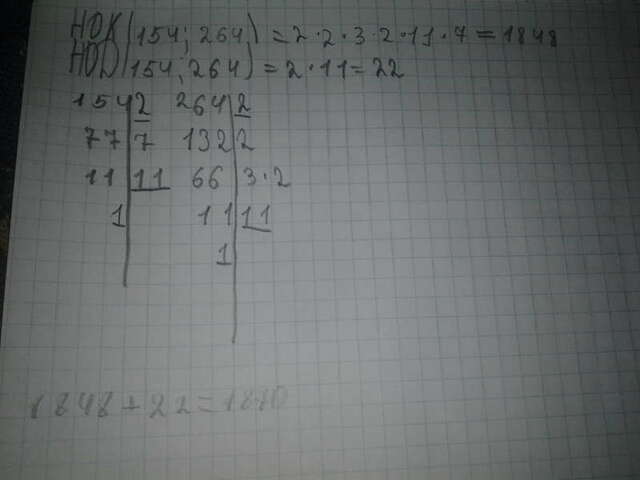 НОК(154; 264) = 2·2·3·2·11·7 = 1848
НОD(154; 264) = 2·11 = 22
154|2 264|2
77|7 132|2
11|11 66|3·2
1| 11|11
1|
1848+22=1870